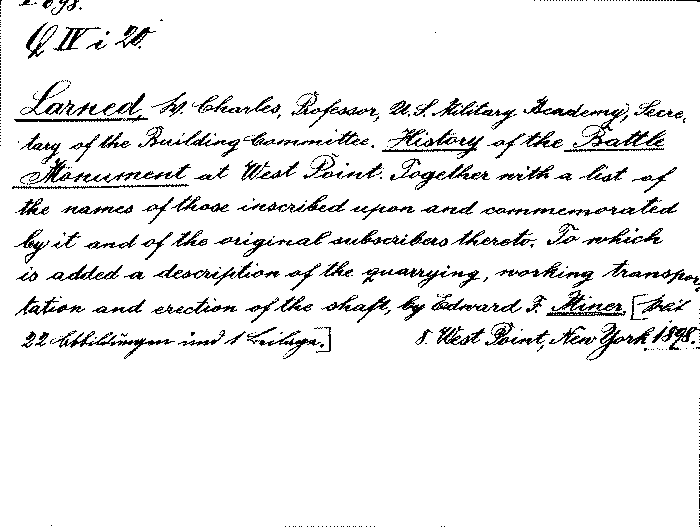 Q IV i 20.
Larned, W. Charles, Professor, U. S. Military Academy, Secre,
tary of the Building Committee. History of the Battle
Monument at West Point. Together with a list of
the names of those inscribed upon and commemorated
by it and of the original subscribers thereto. To which
is added a description of the quarrying, working transpor,
tation and erection of the shaft, by Edward F. Miner, [Mit
22 Abbildungen und 1 Beilage.] 8. West Point, New York 1898.